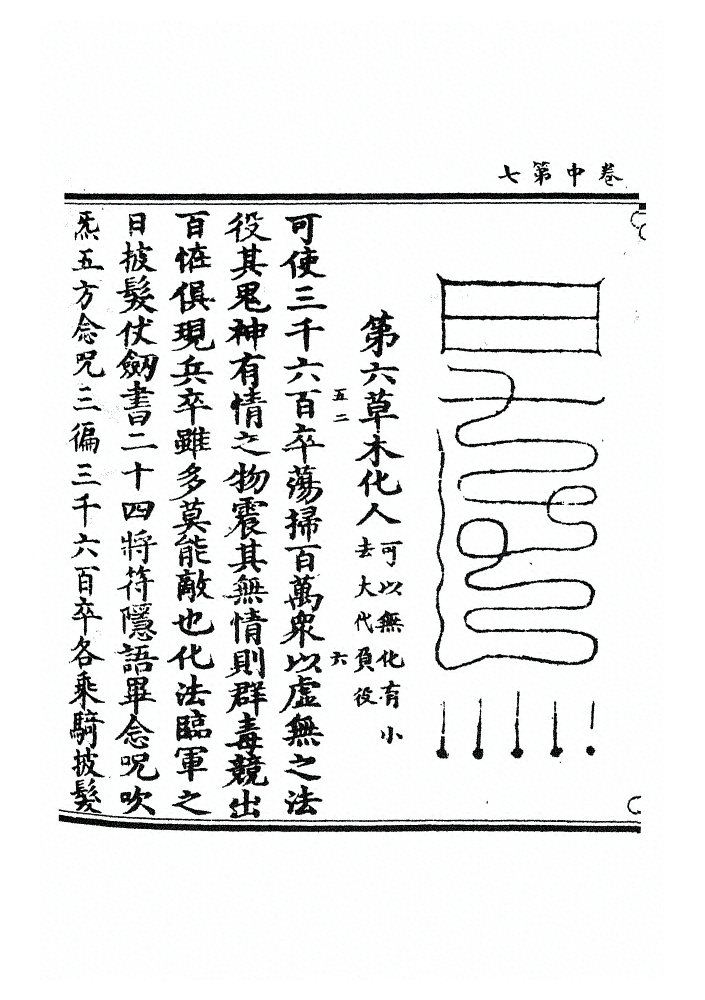 七第中卷
第六草木化人
可以無化有小
去大代負役
五二
六
可使三千六百卒蕩掃百萬衆以虛無之法
役其鬼神有情之物震其無情則群毒競出
百恠俱現兵卒雖多莫能敵也化法臨軍之
日披髮仗劒書二十四將符隱語畢念呪吹
炁五方念呪三徧三千六百卒各乘騎披髮